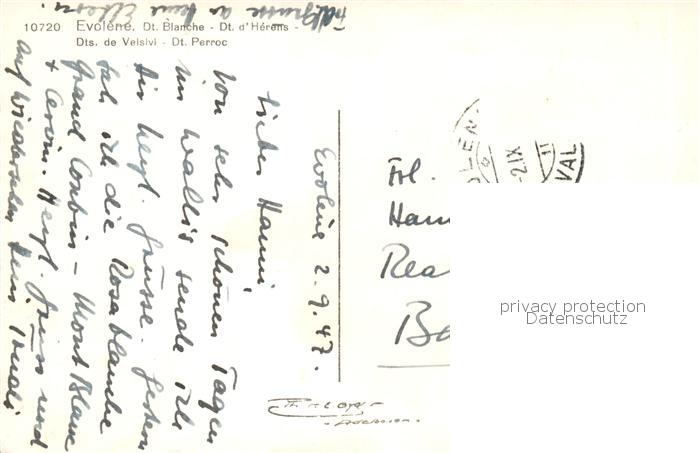 10720 Evolène. Dt. Blanche - Dt. d'Hérens -
Dts. de Veisivi - Dt. Perroc
Frdl. Grüsse an Deine Eltern
Evolène 2.9.47.
Lieber Hanni,
Von sehr schönen Tagen
im Wallis sende ich
Dir herzl. Grüsse. Gestern
sah ich die Rosablanche
Grand Combin - Mont Blanc
+ Cervin. Herzl. Gruss und
auf Wiedersehen Dein
Frl.
Han
Rea
Ba
OLEN
2.IX
VAL
privacy protection
Datenschutz